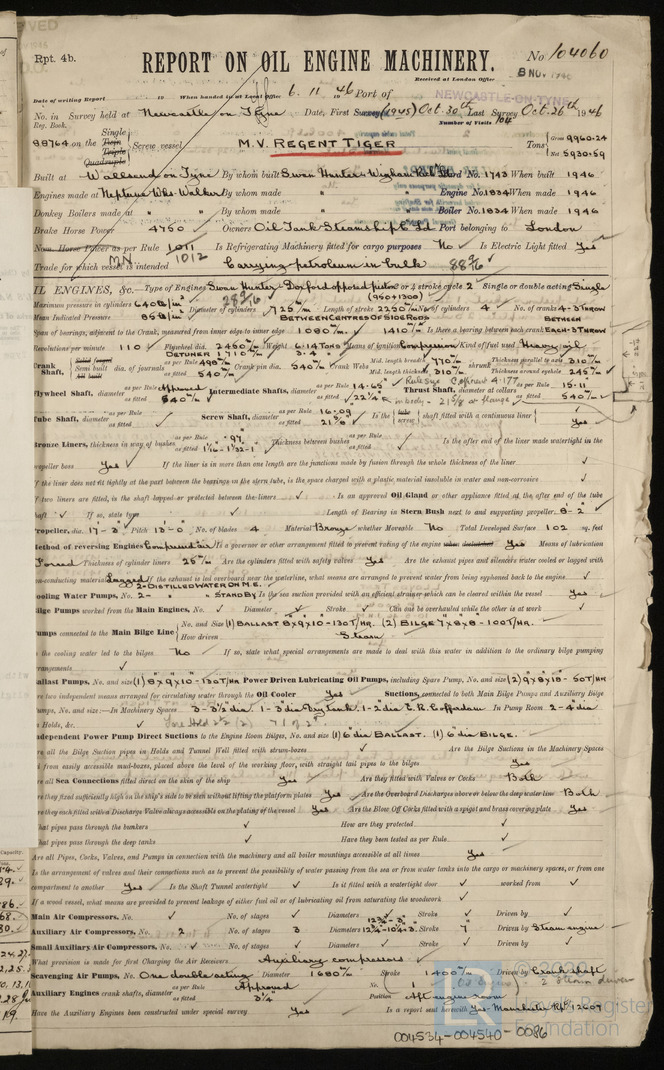 Rpt. 4b.
REPORT ON OIL ENGINE MACHINERY.
No 104060
Received at London Office
8 NOV. 1946
Date of writing Report 19 When handed in at Local Office 6. 11. 1946 Port of NEWCASTLE-ON-TYNE
No. in Survey held at Newcastle on Tyne Date, First Survey (1945) Oct. 30th Last Survey Oct. 26th 1946
Reg. Book. Number of Visits 104
88764 on the Single Twin Triple Quadruple Screw vessel M.V. REGENT TIGER Tons Gross 9960.24 Net 5930.59
Built at Wallsend on Tyne By whom built Swan Hunter & Wigham Yard No. 1743 When built 1946
Engines made at Neptune Wks. Walker By whom made " Engine No. 1834 When made 1946
Donkey Boilers made at " " By whom made " Boiler No. 1834 When made 1946
Brake Horse Power 4750 Owners Oil Tank Steamship C. Ld Port belonging to London
Nom. Horse Power as per Rule 1011 Is Refrigerating Machinery fitted for cargo purposes No Is Electric Light fitted Yes
MN 1012
Trade for which vessel is intended Carrying petroleum in bulk
OIL ENGINES, &c. Type of Engines Swan Hunter Doxford opposed piston 2 or 4 stroke cycle 2 Single or double acting Single
(950+1300)
Maximum pressure in cylinders 640 lb/in² Diameter of cylinders 725 m/m Length of stroke 2250 m/m No. of cylinders 4 No. of cranks 4-3 THROW
Mean Indicated Pressure 85 lb/in² BETWEEN CENTRES OF SIDE RODS BETWEEN
Span of bearings, adjacent to the Crank, measured from inner edge to inner edge 1080 m/m 1410 m/m Is there a bearing between each crank EACH-3 THROW
Revolutions per minute 110 Flywheel dia. 2450 m/m Weight 6.14 TONS Means of ignition Compression Kind of fuel used Heavy oil
DETUNER 1710 m/m 3.4
Crank Shaft, Solid forged Semi built All built dia. of journals as per Rule 498 m/m as fitted 540 m/m Crank pin dia. 540 m/m Crank Webs Mid. length breadth 770 m/m Mid. length thickness 310 m/m shrunk Thickness parallel to axis 310 m/m Thickness around eyehole 245 m/m
Flywheel Shaft, diameter as per Rule Approved as fitted 540 m/m Intermediate Shafts, diameter as per Rule 14.65" as fitted Thrust Shaft, diameter at collars as per Rule 15.11 as fitted 540 m/m
Tube Shaft, diameter as per Rule as fitted Screw Shaft, diameter as per Rule 16.09 as fitted Is the tube screw shaft fitted with a continuous liner Yes
Bronze Liners, thickness in way of bushes as per Rule .97 as fitted Thickness between bushes as per Rule as fitted Is the after end of the liner made watertight in the
propeller boss Yes If the liner is in more than one length are the junctions made by fusion through the whole thickness of the liner
If the liner does not fit tightly at the part between the bearings in the stern tube, is the space charged with a plastic material insoluble in water and non-corrosive
If two liners are fitted, is the shaft lapped or protected between the liners Is an approved Oil Gland or other appliance fitted at the after end of the tube
shaft If so, state type Length of Bearing in Stern Bush next to and supporting propeller 8'-2"
Propeller, dia. 17'-3" Pitch 13'-0" No. of blades 4 Material Bronze whether Moveable No Total Developed Surface 102 sq. feet
Method of reversing Engines Compressed air Is a governor or other arrangement fitted to prevent racing of the engine when declutched Yes Means of lubrication
Forced Thickness of cylinder liners 25 m/m Are the cylinders fitted with safety valves Yes Are the exhaust pipes and silencers water cooled or lagged with
non-conducting material Lagged If the exhaust is led overboard near the waterline, what means are arranged to prevent water from being syphoned back to the engine
2 DISTILLED WATER ON M.E.
Cooling Water Pumps, No. 2- " " STAND BY Is the sea suction provided with an efficient strainer which can be cleared within the vessel Yes
Bilge Pumps worked from the Main Engines, No. Diameter Stroke Can one be overhauled while the other is at work
Pumps connected to the Main Bilge Line No. and Size (1) BALLAST 8x9x10-130T/HR. (2) BILGE 7x8x8-100T/HR.
How driven Steam
Is the cooling water led to the bilges No If so, state what special arrangements are made to deal with this water in addition to the ordinary bilge pumping
arrangements
Ballast Pumps, No. and size (1) 8x9x10-130T/HR Power Driven Lubricating Oil Pumps, including Spare Pump, No. and size (2) 9x8x18-50T/HR
Are two independent means arranged for circulating water through the Oil Cooler Yes Suctions, connected to both Main Bilge Pumps and Auxiliary Bilge
Pumps, No. and size:—In Machinery Spaces 3-3½"dia 1-3"dia Dry tank, 1-2"dia E.R. Cofferdam In Pump Room 2-4"dia
In Holds, &c. Fore Hold
Independent Power Pump Direct Suctions to the Engine Room Bilges, No. and size (1) 6"dia BALLAST. (1) 6"dia BILGE.
Are all the Bilge Suction pipes in Holds and Tunnel Well fitted with strum-boxes Are the Bilge Suctions in the Machinery Spaces
led from easily accessible mud-boxes, placed above the level of the working floor, with straight tail pipes to the bilges Yes
Are all Sea Connections fitted direct on the skin of the ship Yes Are they fitted with Valves or Cocks Both
Are they fixed sufficiently high on the ship's side to be seen without lifting the platform plates Yes Are the Overboard Discharges above or below the deep water line Both
Are they each fitted with a Discharge Valve always accessible on the plating of the vessel Yes Are the Blow Off Cocks fitted with a spigot and brass covering plate Yes
What pipes pass through the bunkers How are they protected
What pipes pass through the deep tanks Have they been tested as per Rule
Are all Pipes, Cocks, Valves, and Pumps in connection with the machinery and all boiler mountings accessible at all times Yes
Is the arrangement of valves and their connections such as to prevent the possibility of water passing from the sea or from water tanks into the cargo or machinery spaces, or from one
compartment to another Yes Is the Shaft Tunnel watertight Is it fitted with a watertight door worked from
If a wood vessel, what means are provided to prevent leakage of either fuel oil or of lubricating oil from saturating the woodwork
Main Air Compressors, No. No. of stages Diameters Stroke Driven by
Auxiliary Air Compressors, No. 2 No. of stages 3 Diameters Stroke 7 Driven by Steam engine
Small Auxiliary Air Compressors, No. No. of stages Diameters Stroke Driven by
What provision is made for first Charging the Air Receivers Auxiliary compressors
Scavenging Air Pumps, No. One double acting Diameter 1680 m/m Stroke 1400 m/m Driven by Crank shaft
Auxiliary Engines crank shafts, diameter as per Rule Approved as fitted 3¼" No. 1 Position Aft engine room
Have the Auxiliary Engines been constructed under special survey Yes Is a report sent herewith Yes. Manchester Rpt 12607
© 2020
Lloyd's Register
Foundation
004534-004540-0086